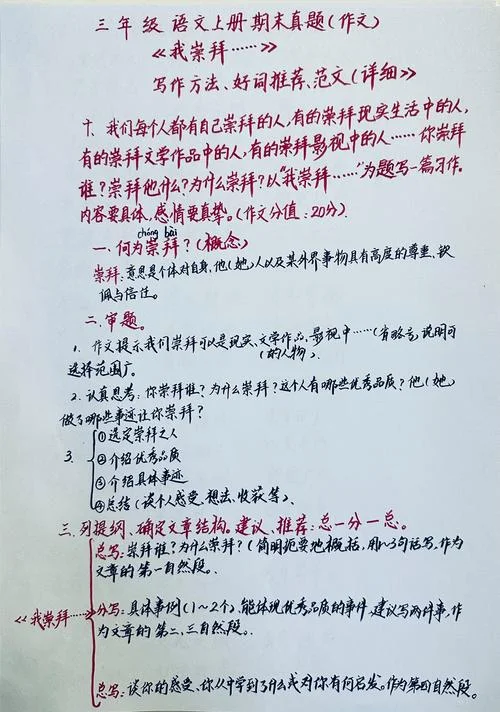 三年级语文上册期末真题(作文)
《我崇拜……》
写作方法、好词推荐、范文(详细》
十、我们每个人都有自己崇拜的人,有的崇拜现实生活中的人,
有的崇拜文学作品中的人,有的崇拜影视中的人……你崇拜
谁?崇拜他什么?为什么崇拜?以“我崇拜……”为题写一篇习作。
内容要具体,感情要真挚。(作文分值:20分).
chóng bài
一.何为崇拜?(概念)
崇拜:意思是个体对自身,他(她)人以及某外界事物具有高度的尊重、钦
佩与信任。
二.审题。
1. 作文提示我们崇拜可以是现实、文学作品、影视中……(省略号,说明可
(的人物).
选择范围广。
2.认真思考:你崇拜谁?为什么崇拜?这个人有哪些优秀品质?他(她)
做了哪些事迹让你崇拜?
①选定崇拜之人
3. ②介绍优秀品质
③介绍具体事迹
④总结(谈个人感受、想法、收获等).
三.列提纲、确定文章结构。建议、推荐:总一分一总。
总写:崇拜谁?为什么崇拜?(简明扼要地概括,用1~3句话写,作为
文章的第一自然段。
《我崇拜……》分写:具体事例(1~2个),能体现优秀品质的事件,建议写两件事,作
为文章的第二,三自然段。
总写:谈你的感受、你从中学到了什么或对你有何启发。作为第四自然段。